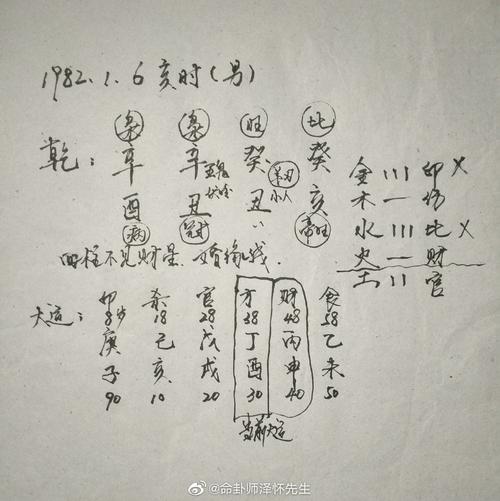 1982.1.6 亥时(男)
枭 枭 旺 比
乾: 辛 辛 癸 癸
金 111 印 X
羊刃
小人
木 一
酉 丑 丑 亥
水 111 比 X
病 冠 帝旺
火 一 财
四柱不见财星.婚缘浅
土 11 官
大运:
杀 官 才 财 食
18 28 38 48 58
庚 己 戊 丁 丙 乙
子 亥 戌 酉 申 未
90 10 20 30 40 50
当前大运
@命卦师泽怀先生